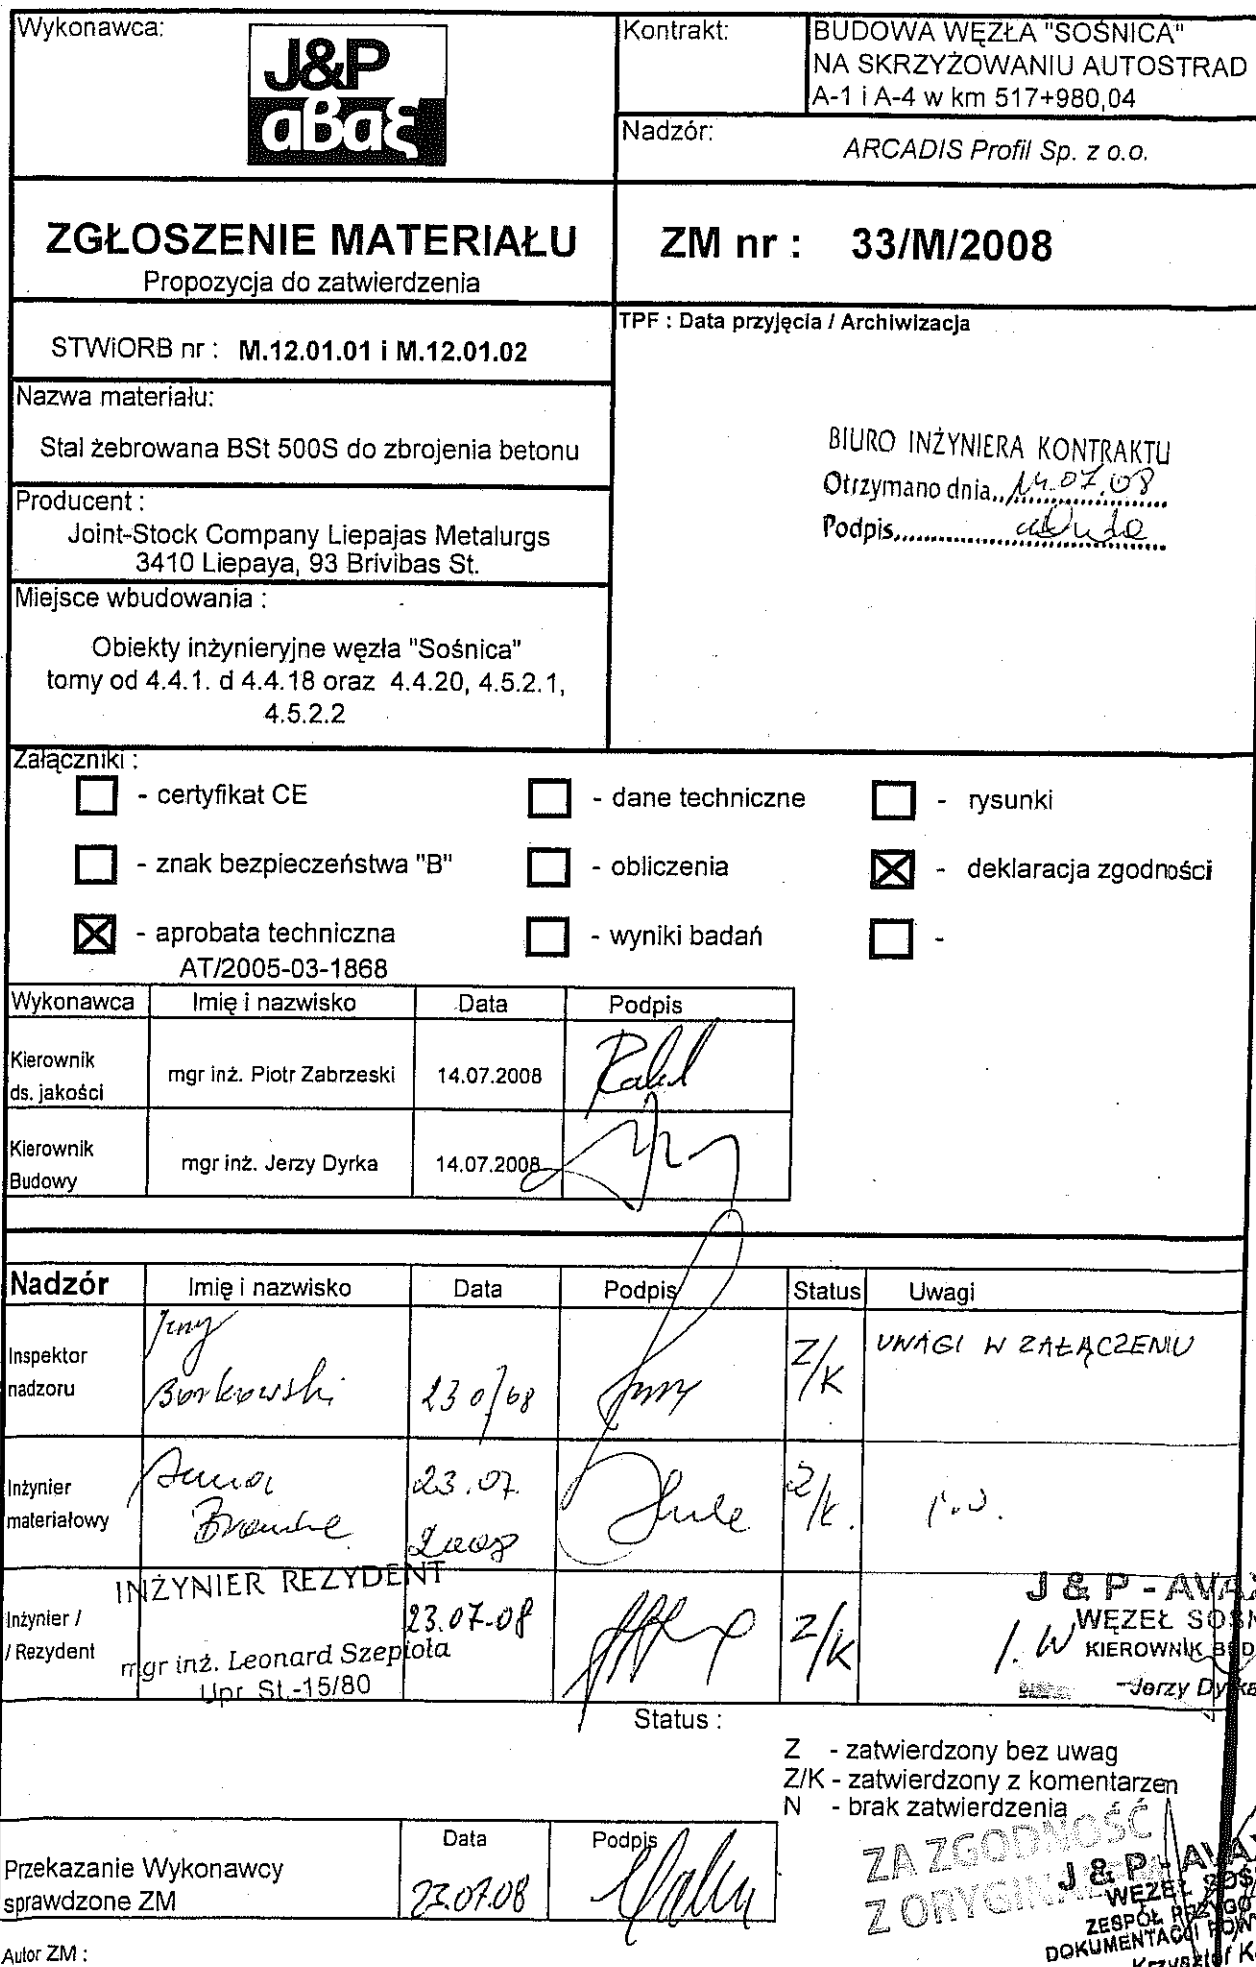 Wykonawca:
J&P
αβαξ
Kontrakt:
BUDOWA WĘZŁA "SOŚNICA"
NA SKRZYŻOWANIU AUTOSTRAD
A-1 i A-4 w km 517+980,04
Nadzór:
ARCADIS Profil Sp. z o.o.
ZGŁOSZENIE MATERIAŁU
Propozycja do zatwierdzenia
ZM nr : 33/M/2008
STWiORB nr : M.12.01.01 i M.12.01.02
TPF : Data przyjęcia / Archiwizacja
Nazwa materiału:
Stal żebrowana BSt 500S do zbrojenia betonu
BIURO INŻYNIERA KONTRAKTU
Otrzymano dnia 14.07.08
Podpis
Producent :
Joint-Stock Company Liepajas Metalurgs
3410 Liepaya, 93 Brivibas St.
Miejsce wbudowania :
Obiekty inżynieryjne węzła "Sośnica"
tomy od 4.4.1. d 4.4.18 oraz 4.4.20, 4.5.2.1,
4.5.2.2
Załączniki :
- certyfikat CE
- dane techniczne
- rysunki
- znak bezpieczeństwa "B"
- obliczenia
- deklaracja zgodności
- aprobata techniczna
AT/2005-03-1868
- wyniki badań
-
Wykonawca Imię i nazwisko Data Podpis
Kierownik
ds. jakości
mgr inż. Piotr Zabrzeski 14.07.2008
Kierownik
Budowy
mgr inż. Jerzy Dyrka 14.07.2008
Nadzór Imię i nazwisko Data Podpis Status Uwagi
Inspektor
nadzoru
Jerzy
Borkowski
23 07 08
Z/K
UWAGI W ZAŁĄCZENIU
Inżynier
materiałowy
Anna
23.07.
2008
Z/K.
Inżynier /
/ Rezydent
INŻYNIER REZYDENT
mgr inż. Leonard Szepiota
Upr. St.-15/80
23.07-08
Z/K
J.W
J & P - AVAX
WĘZEŁ SOŚN
KIEROWNIK BUD
Jerzy Dyrka
Status :
Z - zatwierdzony bez uwag
Z/K - zatwierdzony z komentarzen
N - brak zatwierdzenia
Przekazanie Wykonawcy
sprawdzone ZM
Data
23.07.08
Podpis
ZA ZGODNOŚĆ
Z ORYGINAŁEM
J & P - AVAX
WĘZEŁ SOŚ
ZESPÓŁ PRZYGO
DOKUMENTACJI POW
Krzysztof K
Autor ZM :